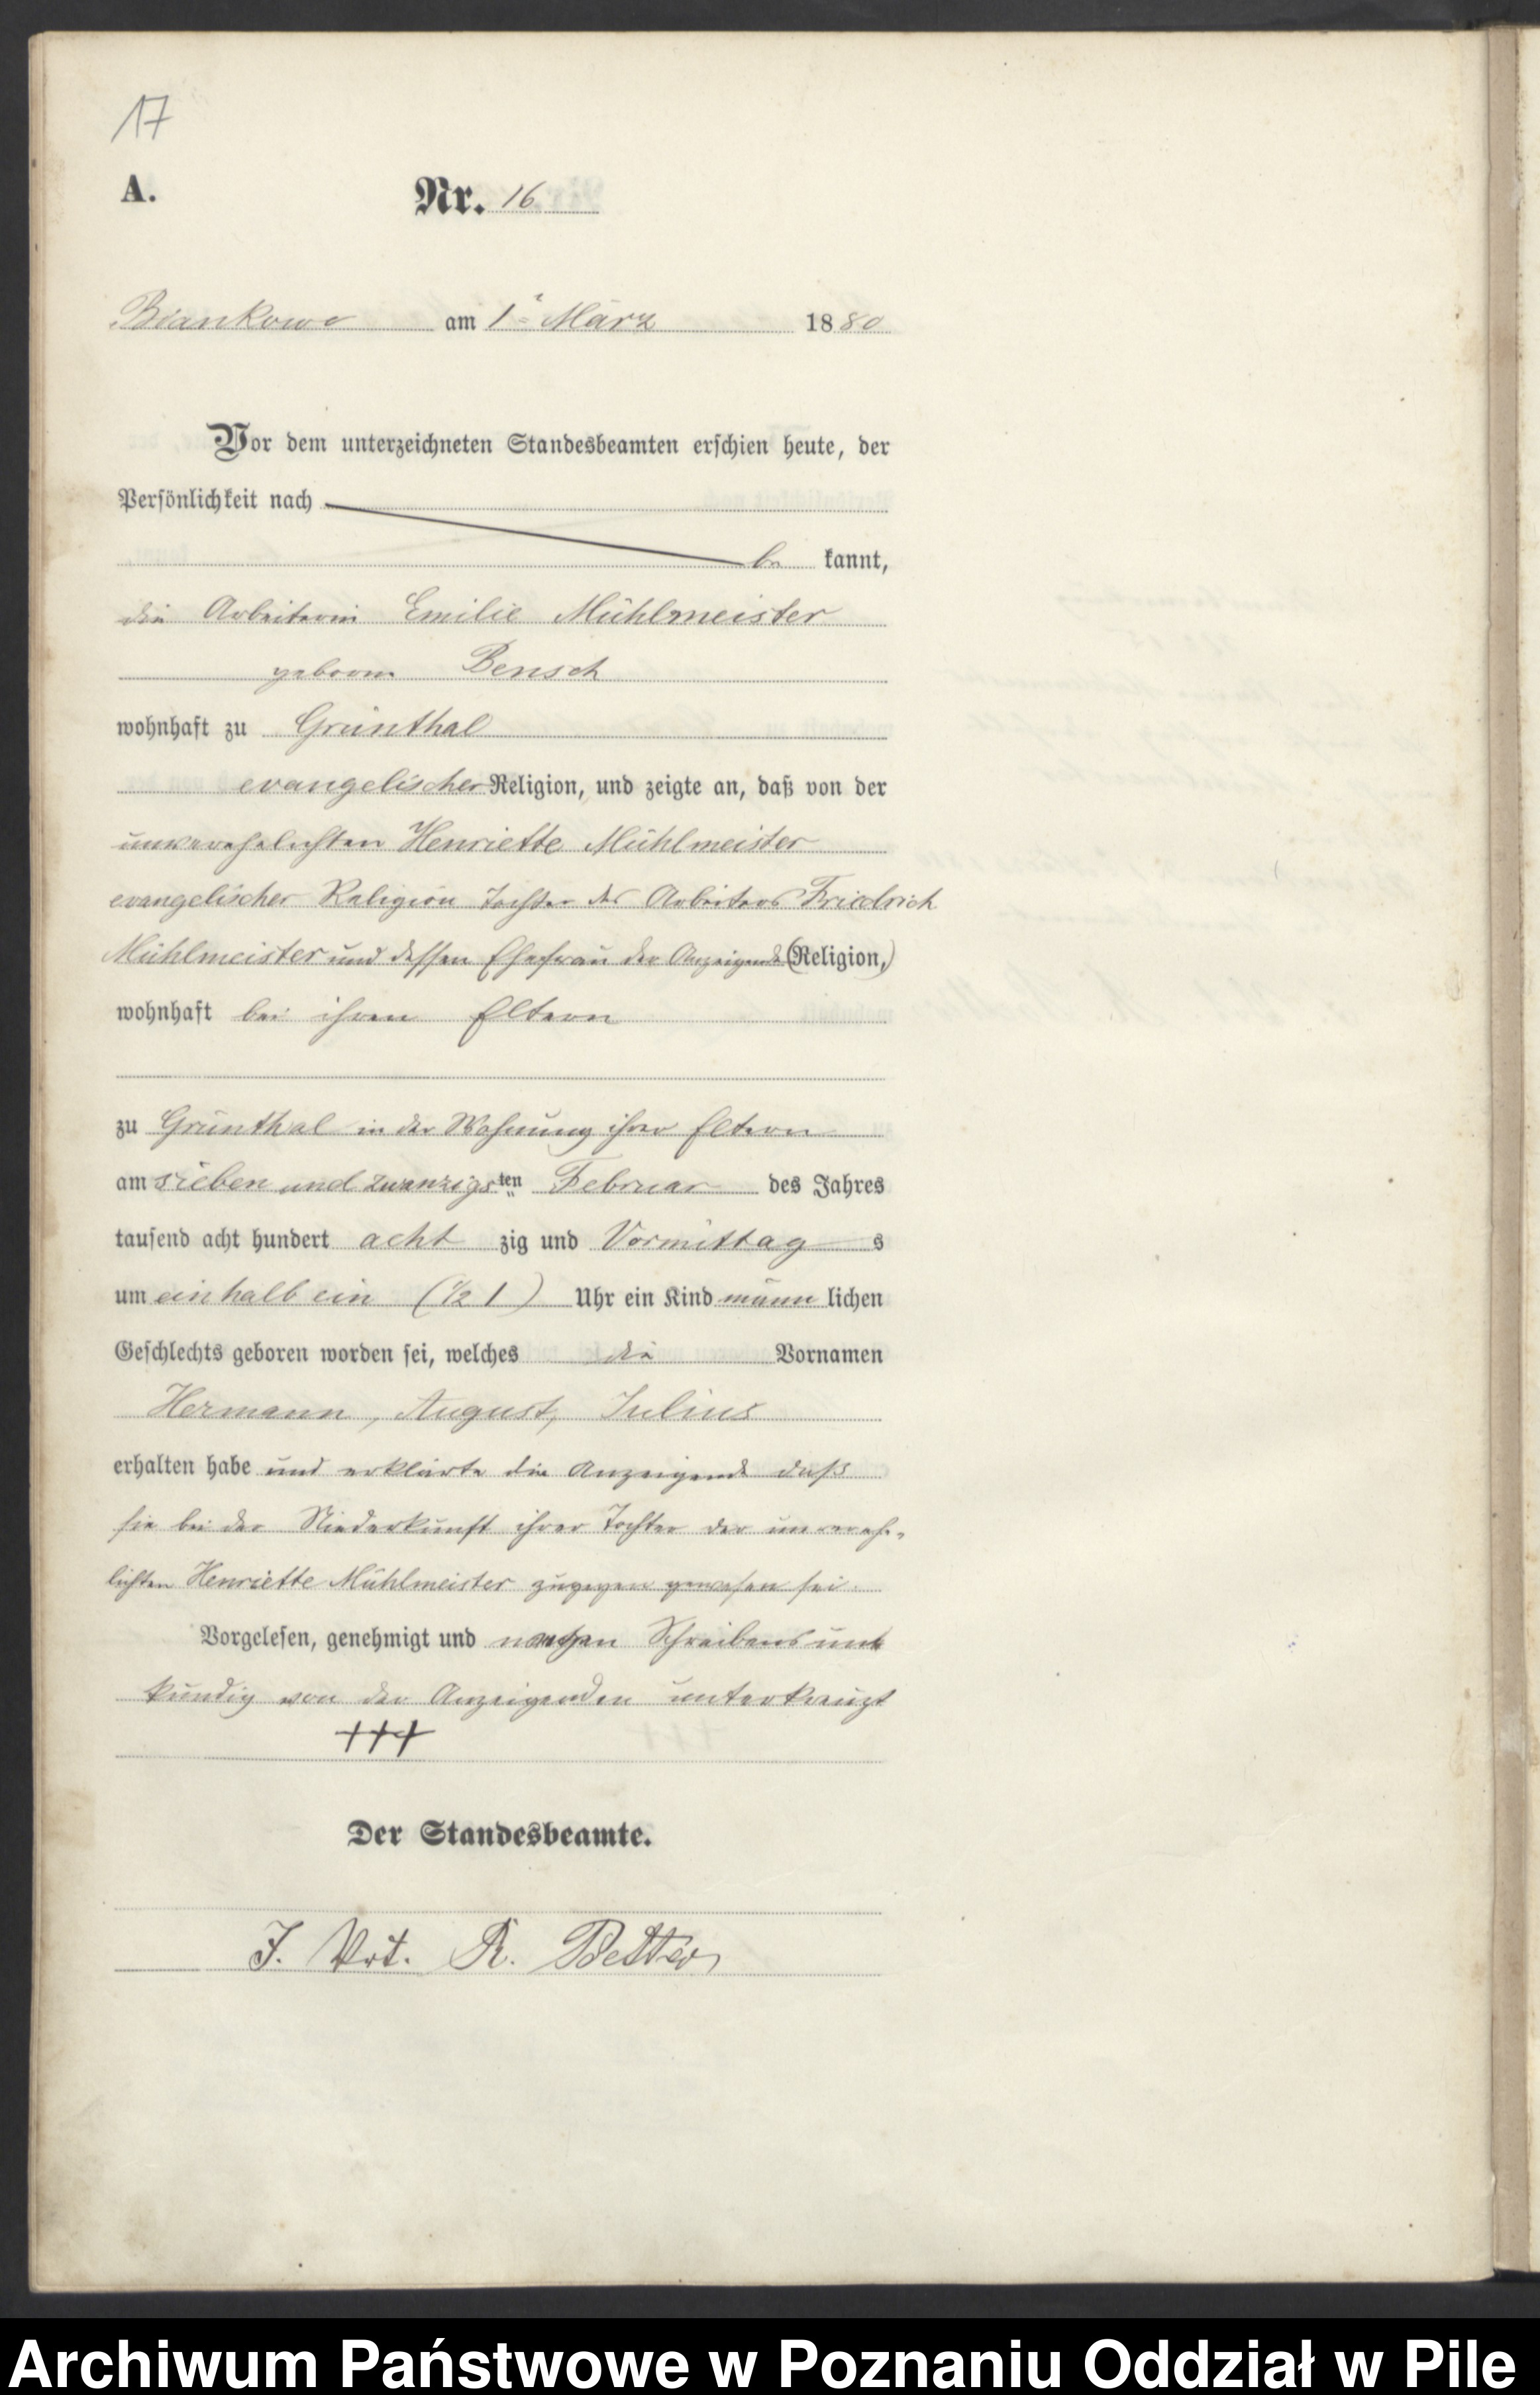 17
A. Nr. 16
Briankowo am 1ᵗ März 1880
Vor dem unterzeichneten Standesbeamten erschien heute, der
Persönlichkeit nach
be kannt,
die Arbeiterin Emilie Mühlmeister
geborne Bensch
wohnhaft zu Grünthal
evangelischer Religion, und zeigte an, daß von der
unverehelichten Henriette Mühlmeister
evangelischer Religion Tochter des Arbeiters Friedrich
Mühlmeister und dessen Ehefrau der Anzeigende (Religion,)
wohnhaft bei ihren Eltern
zu Grünthal in der Wohnung ihrer Eltern
am sieben und zwanzigsten Februar des Jahres
tausend acht hundert acht zig und Vormittag s
um ein halb ein (½ 1) Uhr ein Kind männ lichen
Geschlechts geboren worden sei, welches die Vornamen
Hermann, August, Julius
erhalten habe und erklärte die Anzeigende daß
sie bei der Niederkunft ihrer Tochter der unvereh-
lichten Henriette Mühlmeister zugegen gewesen sei.
Vorgelesen, genehmigt und wegen Schreibens un
kundig von der Anzeigenden unterkreuzt
+++
Der Standesbeamte.
J. Vrt. R.
Archiwum Państwowe w Poznaniu Oddział w Pile